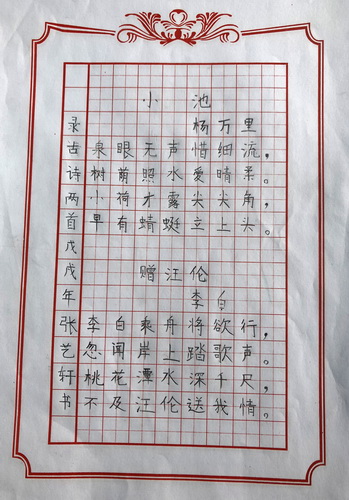 小池
杨万里
泉眼无声惜细流，
树荫照水爱晴柔。
小荷才露尖尖角，
早有蜻蜓立上头。
赠汪伦
李白
李白乘舟将欲行，
忽闻岸上踏歌声。
桃花潭水深千尺，
不及汪伦送我情。
录古诗两首戊戌年张艺轩书